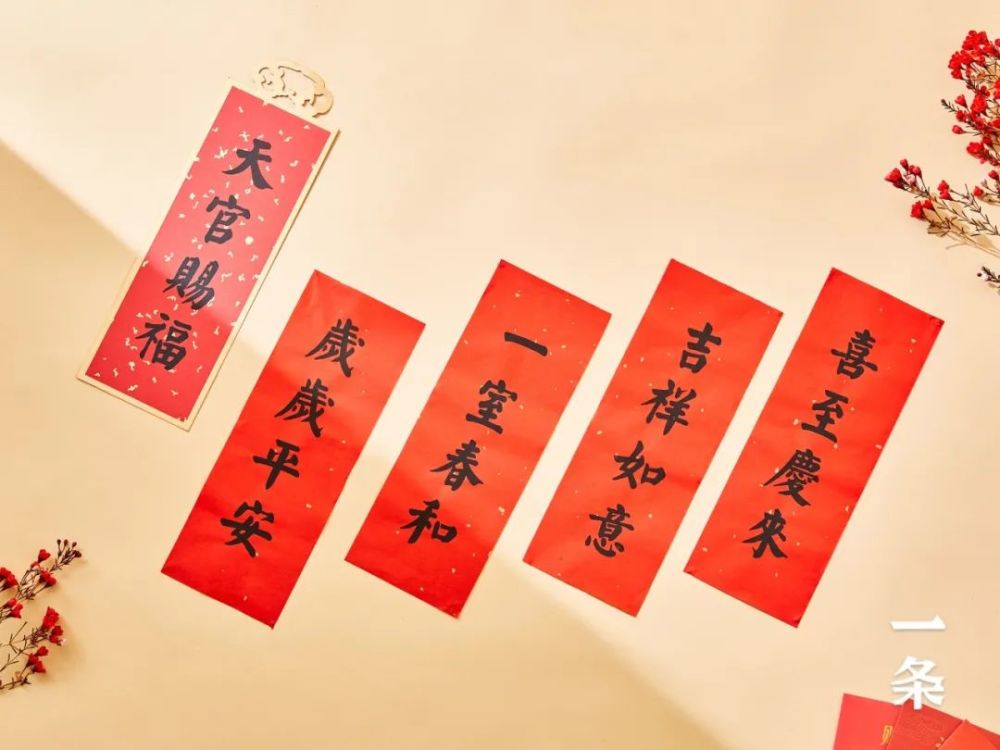 天官賜福
歲歲平安
一室春和
吉祥如意
喜至慶來
一条